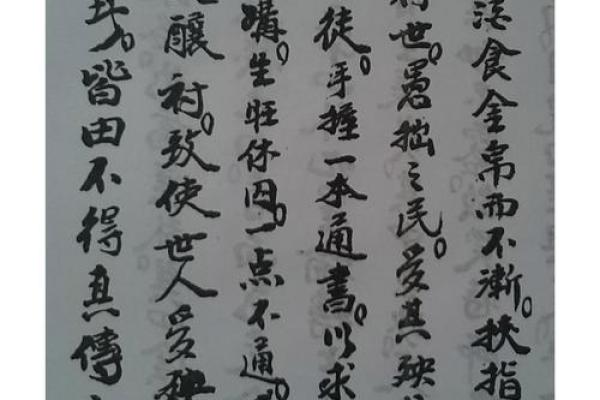 食金帛而不漸。挾指
世。愚拙之民。受其殃
徒。手握一本通書。以求
生旺休囚。一点不通。
釀衬。致使世人受殃
皆由不得真傳